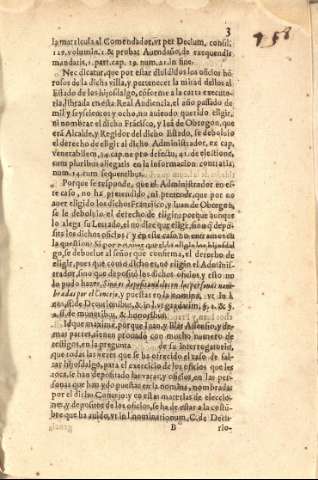 3
758
la matricula al Comendador, vt per Decium, consil.
127. volumin. 1. & probat Auendaño, de exequendis
mandatis, 1. part. cap. 19. num. 21. in fine.
Nec dicatur, que por estar diuididos los oficios ho-
rosos de la dicha villa, y pertenecer la mitad dellos al
Estado de los hijosdalgo, cõforme a la carta executo-
ria, librada en esta Real Audiencia, el año passado de
mil y seyscientos y ocho, no auiendo querido eligir,
ni nombrar el dicho Frãcisco, y Iuã de Obregon, que
era Alcalde, y Regidor del dicho Estado, se deboluio
el derecho de eligir al dicho Administrador, ex cap.
venerabilem, 34. cap. ne pro defectu, 41. de electione,
cum pluribus allegatis en la informacion contraria,
num. 14. cum sequentibus.
Porque se responde, que el Administrador en es-
te caso, no ha pretendido, ni pretende, que por no
auer eligido los dichos Francisco, y Iuan de Obregon,
se le deboluio el derecho de eligir, porque aunque
lo alega su Letrado, el no dize que eligio, sino q̃ depo-
sitò los dichos oficios, y en este caso, no entramos en
la question: Si por no auer querido eligir los hijosdal-
go, se deboluio al señor que confirma, el derecho de
eligir, pues que como dicho es, no eligio el Adminis-
trador, sino que depositò los dichos oficios, y esto no
lo pudo hazer,
bradas por el Concejo, y puestas en la nomina, vt in l.
nominationum,
Idque maxime, porque Iuan, y Blas Assensio, y de-
mas partes, tienen prouado con mucho numero de
testigos, en la pregunta de su Interrogatorio,
que todas las vezes que se ha ofrecido el caso de fal-
tar hijosdalgo, para el exercicio de los oficios que les
toca, se han depositado las varas, y oficios, en las per-
sonas que han ydo puestas en la nomina, nombradas
por el dicho Concejo, y en estas materias de eleccio-
nes, y depositos de los oficios, se ha de estar a la costũ-
bre que ha auido, vt in l. nominationum, C. de Decu-
B rio-